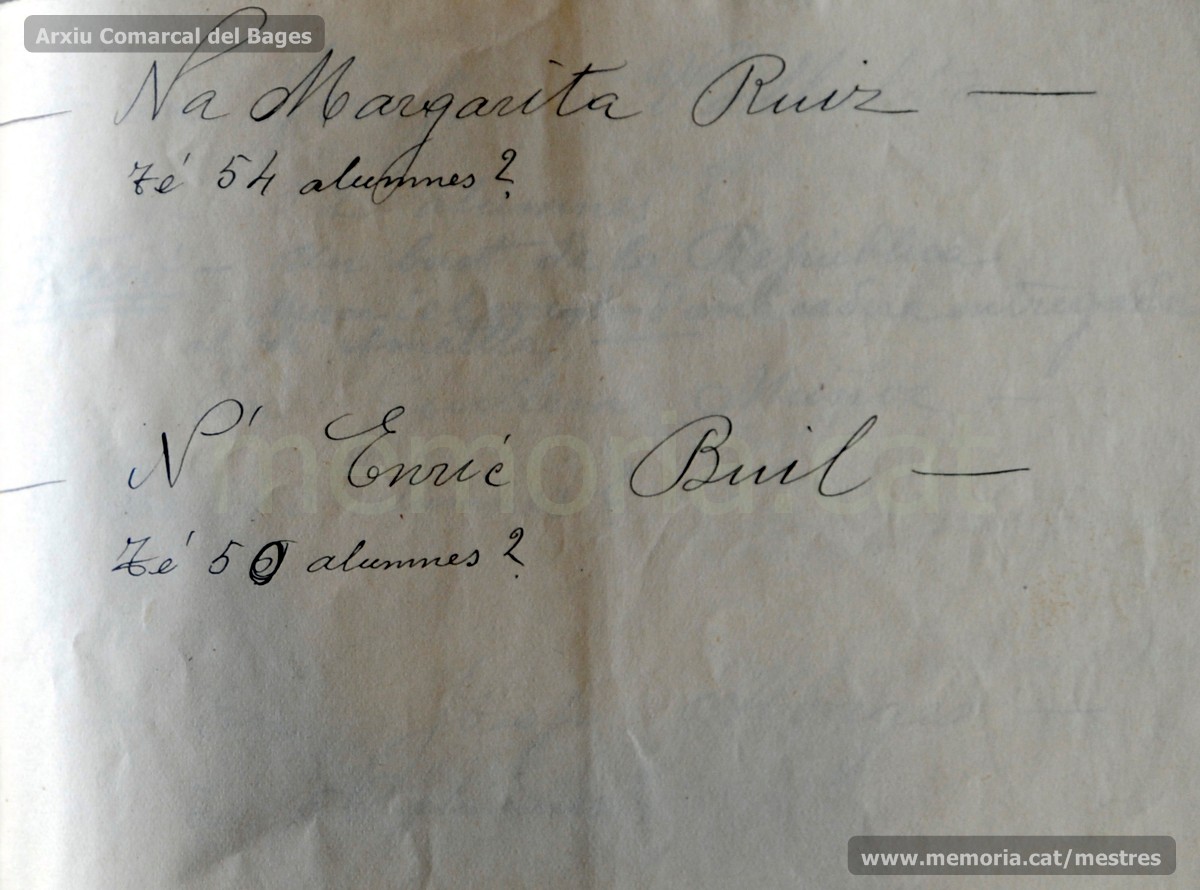 Arxiu Comarcal del Bages
— Na Margarita Ruiz —
Té 54 alumnes?
— N' Enric Buil —
Té 50 alumnes?
memoria.cat
www.memoria.cat/mestres